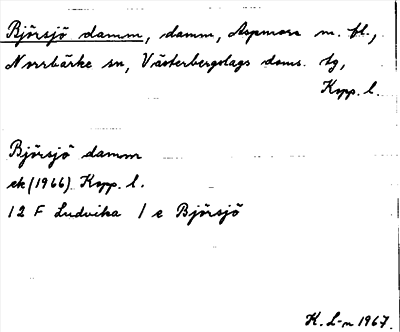 Bjôrsjö damm, damm, Aspmora m. fl.,
Norrbärke sn, Västerbergslags doms. tg,
Kopp. l.
Björsjö damm
ek (1966) Kopp. l.
12 F Ludvika 1 e Björsjö
K. L-m 1967.